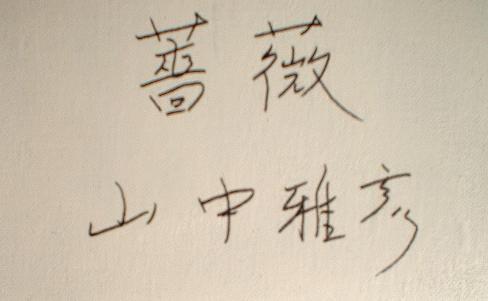 薔薇
山中雅彦